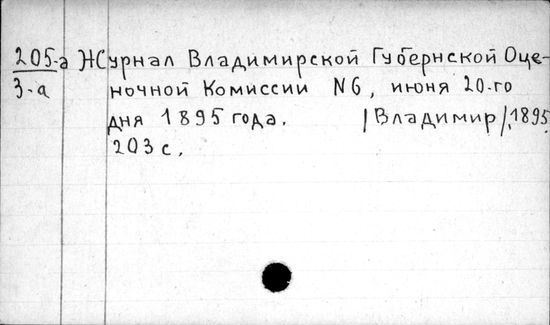 205-а Журнал Владимирской Губернской Оце-
3-а ночной Комиссии N6, июня 20-го
дня 1895 года. /Владимир/, 1895.
203 с.